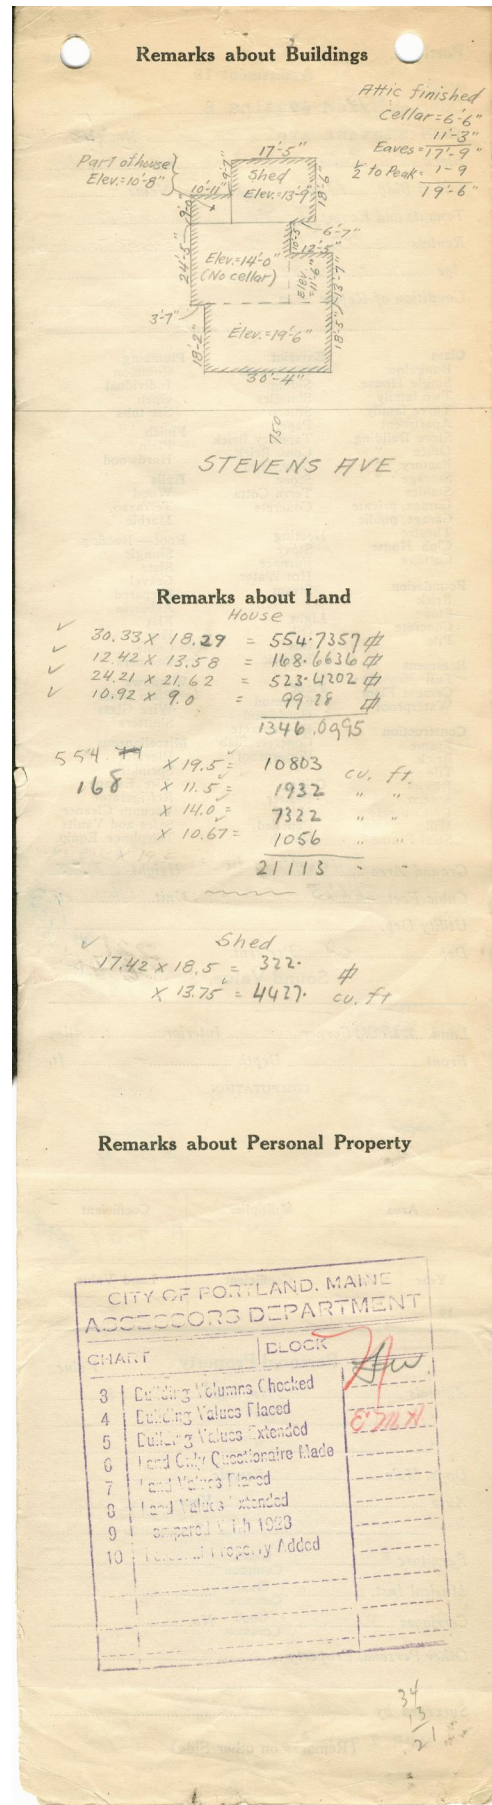 Remarks about Buildings
Attic finished
Cellar=6'-6"
11'-3"
Eaves=17'-9"
½ to Peak= 1-9
19'-6"
Part of house
Elev.=10'-8"
17'-5"
Shed
Elev.=13'-9"
18'-6"
10'-11"
9'-0"
6'-7"
10'-5"
12'-5"
24'-5"
Elev.=14'-0"
(No cellar)
Elev. =11'-6"
13'-7"
3'-7"
18'-2"
Elev.=19'-6"
18'-5"
30'-4"
750
STEVENS AVE
Remarks about Land
House
30.33 X 18.29 = 554.7357
12.42 X 13.58 = 168.6636
24.21 X 21.62 = 523.4202
10.92 X 9.0 = 99 28
1346.0995
554.
168
X 19.5 = 10803 cu. ft.
X 11.5 = 1932 " "
X 14.0 = 7322 " "
X 10.67 = 1056 " "
21113 " "
Shed
17.42 X 18.5 = 322.
X 13.75 = 4427. cu. ft
Remarks about Personal Property
CITY OF PORTLAND, MAINE
ASSESSORS DEPARTMENT
CHART BLOCK
3 Building Volumns Checked
4 Building Values Placed
5 Building Values Extended
6 Land Only Questionaire Made
7 Land Values Placed
8 Land Values Extended
9 Compared With 1923
10 Personal Property Added
34
13
21